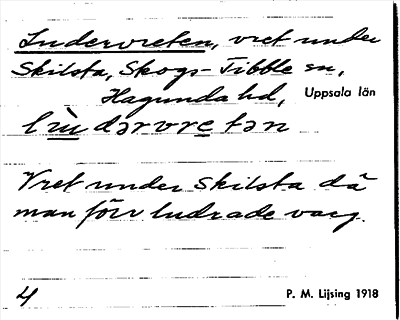 Ludervreten, vret under
Skilsta, Skogs-Tibble sn,
Hagunda hd, Uppsala län
lùdərvretən
Vret under Skilsta då
man förr ludrade varg.
4 P. M. Lijsing 1918